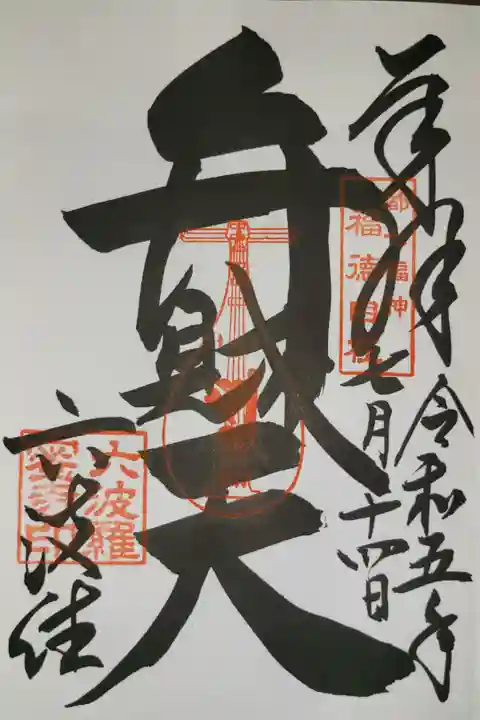 奉拝
令和五年
七月十四日
都七福神
福徳自在
弁財天
六波羅
蜜寺印
六波羅